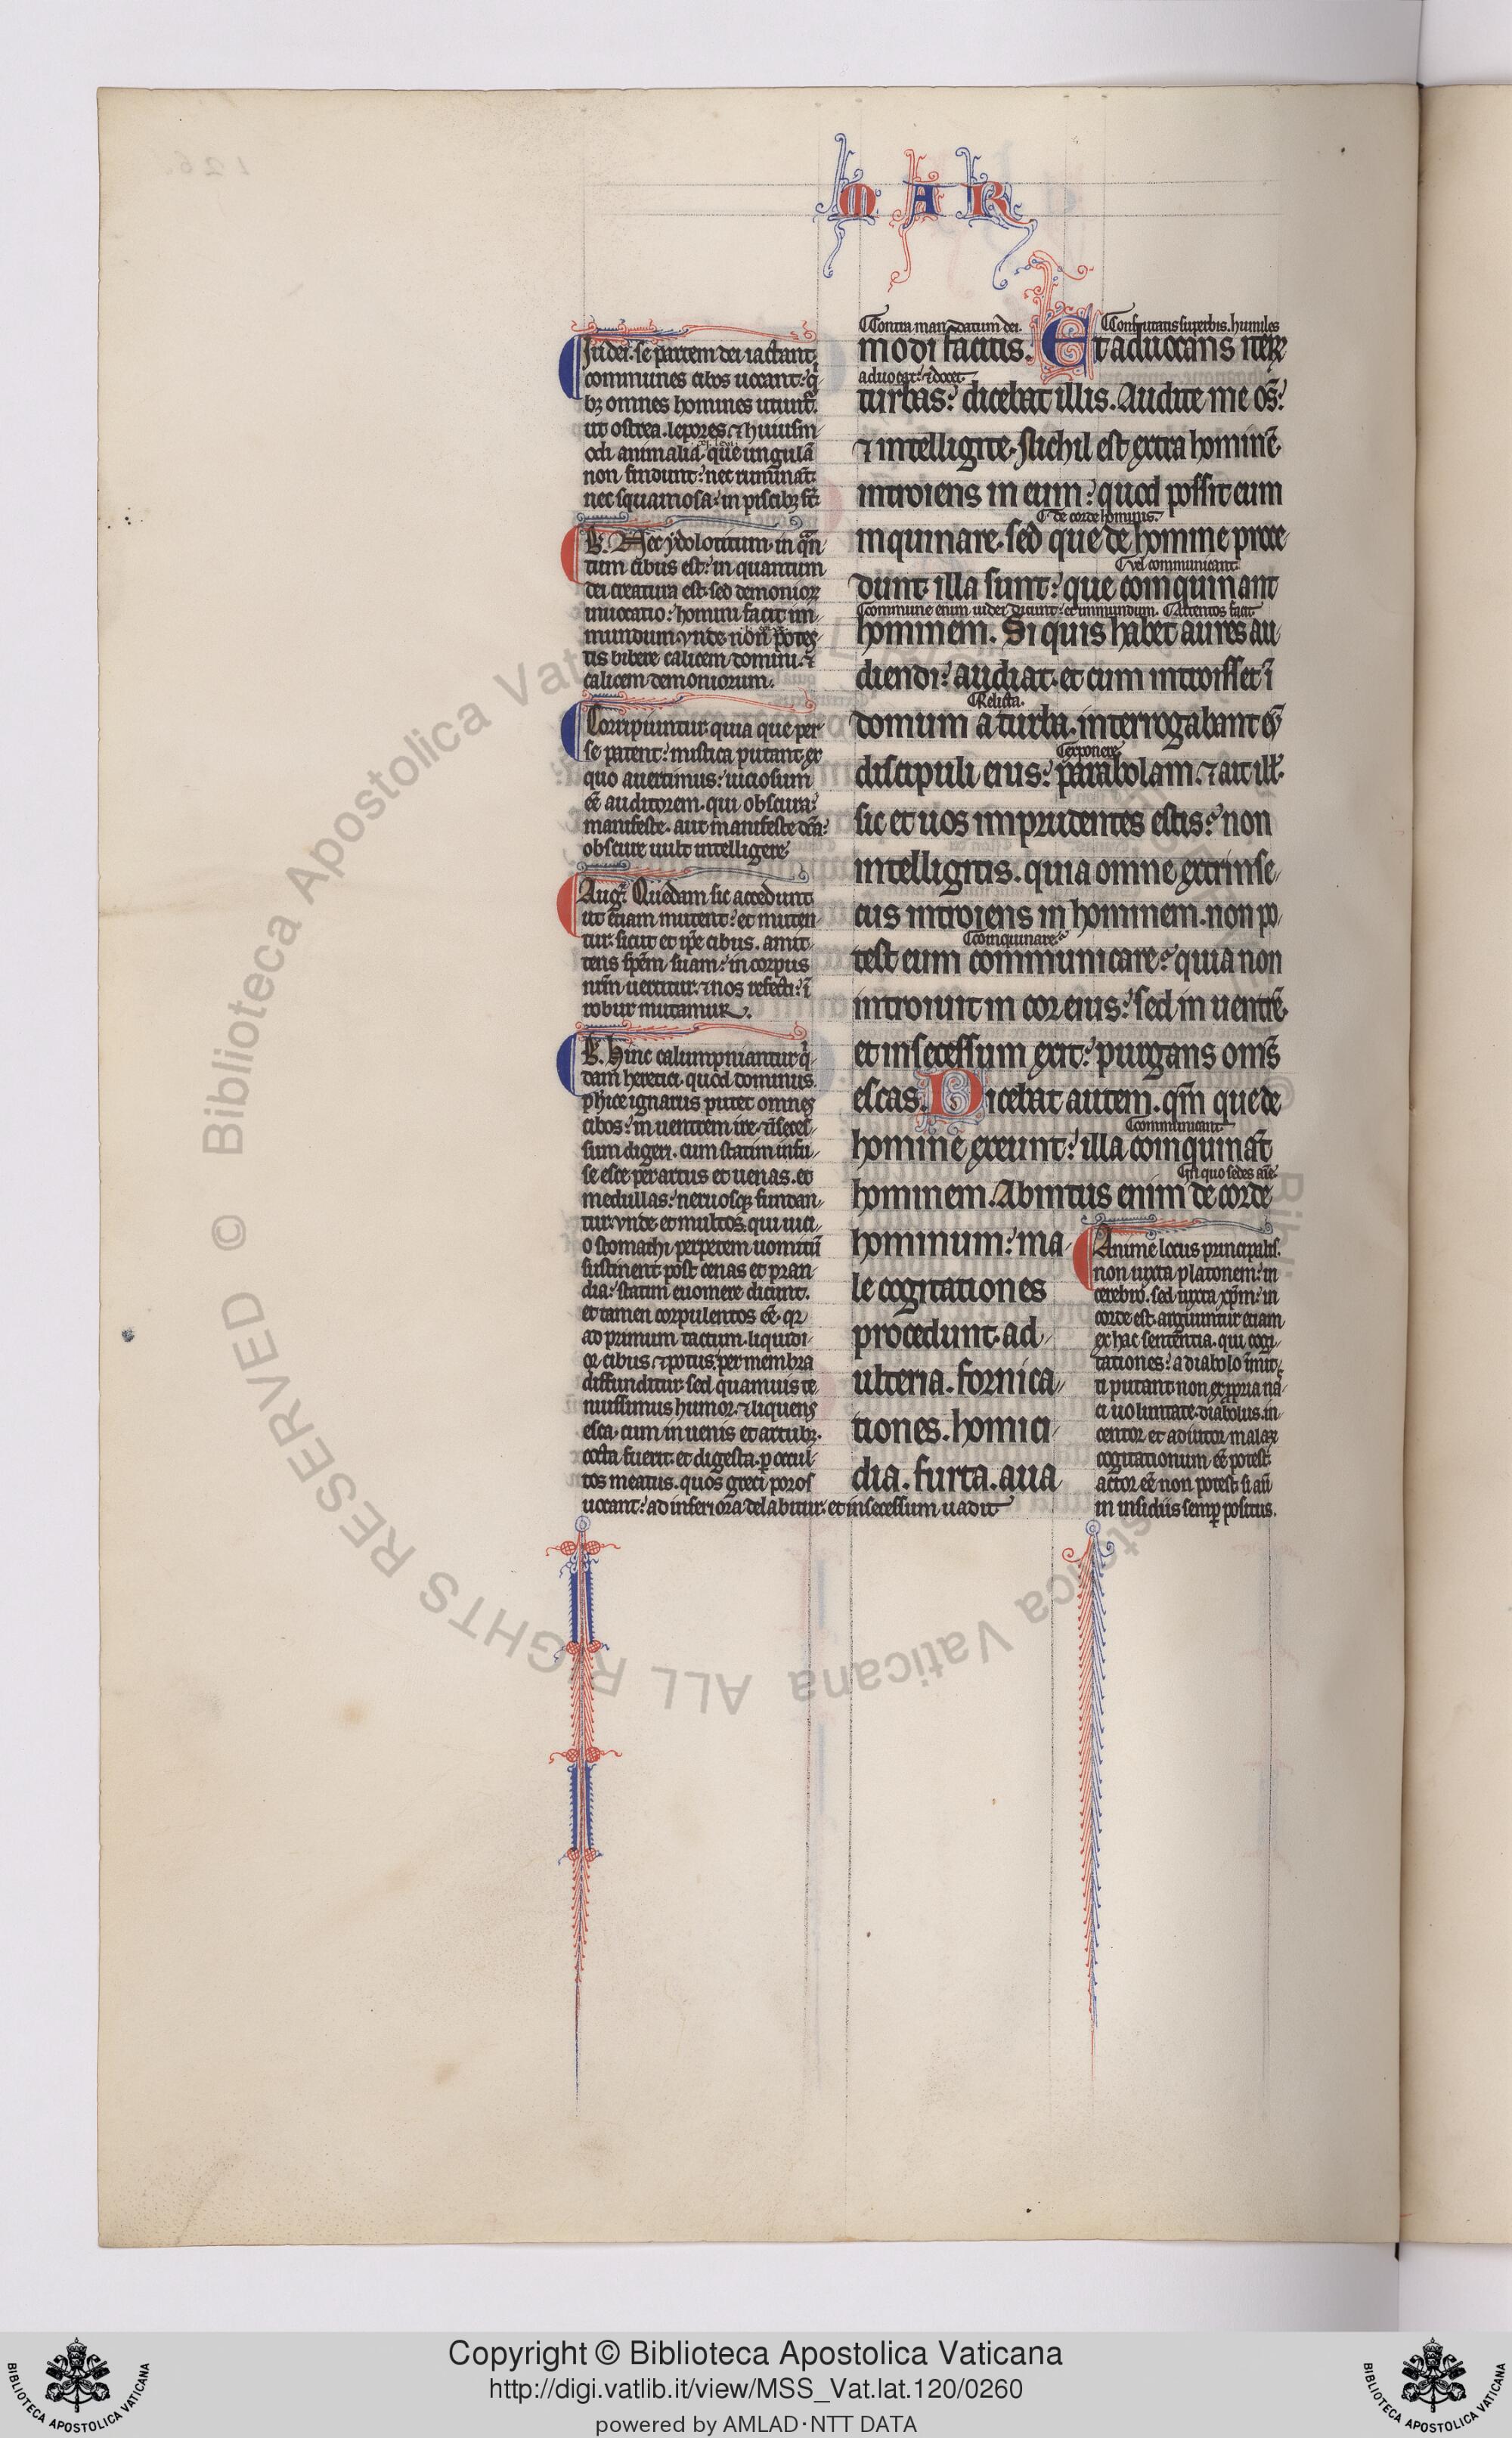 M A R
Iudei se partem dei iactant.
communes cibos uocant: qͥ
bꝫ omnes homines utunt᷑.
ut ostrea. lepores. ⁊ huiusm
odi animalia. que ungulā
non findunt: nec rumināt.
nec squamosa: in piscibꝫ st̄.
B. Nec ydolotitum. in qn̄
tum cibus est: in quantum
dei creatura est. sed demonioꝝ
inuocatio: homini facit im
mundum. vnde non potes
tis bibere calicem domini. ⁊
calicem demoniorum.
Corripiuntur quia que per
se patent: mistica putant. ex
quo auertimus: uiciosum
eē auditorem. qui obscura:
manifeste. aut manifeste dc̄a:
obscure uult intelligere.
Aug. Quedam sic accedunt
ut etiam mutent: et muten
tur. sicut et ip̄e cibus. amit
tens sp̄em suam: in corpus
nr̄m uertitur. ⁊ nos refecti: ī
robur mutamur.
B. Hinc calumpniantur qͥ
dam heretici. quod dominus.
phice ignarus putet omnes
cibos: in uentrem ire. ⁊ ī secef
sum digeri. cum statim infu
se esce per artus et uenas. et
medullas: neruosqꝫ fundan
tur. vnde et multos. qui uici
o stomachi perpetem uomitū
sustinent post cenas et pran
dia: statim euomere dicunt.
et tamen corpulentos eē. qꝛ
ad primum tactum. liquidi
oꝛ cibus ⁊ potus. per membra
diffunditur. sed quamuis te
nuissimus humor. ⁊ liquens
esca. cum in uenis et artubꝫ.
cocta fuerit. et digesta. ꝑ occul
tos meatus. quos greci poros
uocant: ad inferiora delabitur. et in secessum uadit
Contra mandatum dei. Confutatis superbis. humiles
modi facitis. Et aduocans iteꝝ
aduocat: ⁊ docet.
turbas: dicebat illis. Audite me os̄:
⁊ intelligite. Nichil est extra hominē
introiens in eum: quod possit eum
de corde hominis.
inquinare. sed que de homine proce
uel communicant
dunt. illa sunt: que coinquinant
commune enim iudei dicunt: et inmundum. Attentos facit
hominem. Si quis habet aures au
diendi: audiat. et cum introisset ī
Relicta.
domum a turba. interrogabant eū
exponere
discipuli eius: parabolam. ⁊ ait ill̄.
sic et uos imprudentes estis: non
intelligitis. quia omne extrinse
cus introiens in hominem. non po
coinquinare
test eum communicare: quia non
introiuit in cor eius: sed in uentrē
et in secessum exit: purgans om̄s
escas. Dicebat autem. qm̄ que de
communicant
homine exeunt: illa coinquināt
In quo sedes aīe
hominem. Abintus enim de corde
hominum: ma
le cogitationes
procedunt. ad
ulteria. fornica
tiones. homici
dia. furta. aua
Anime locus principalis.
non iuxta platonem: in
cerebro. sed iuxta xp̄m: in
corde est. arguuntur etiam
ex hac sententia. qui cogi
tationes: a diabolo īmit
ti putant. non ex ꝓpria na
ci uoluntate. diabolus. in
centor et adiutor malaꝝ
cogitationum eē potest.
actor eē non potest. si aū
in insidiis semꝑ positus.
© Biblioteca Apostolica Vaticana ALL RIGHTS RESERVED
Copyright © Biblioteca Apostolica Vaticana
http://digi.vatlib.it/view/MSS_Vat.lat.120/0260
powered by AMLAD·NTT DATA
BIBLIOTECA APOSTOLICA VATICANA
BIBLIOTECA APOSTOLICA VATICANA